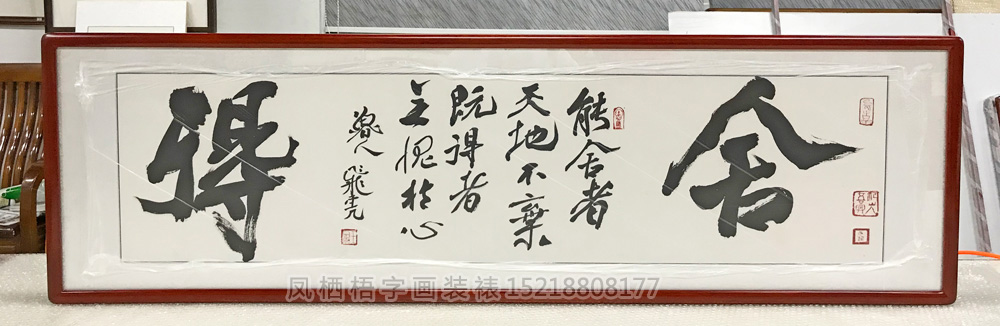 舍
能舍者
天地不棄
既得者
无愧於心
得
凤栖梧字画装裱15218808177